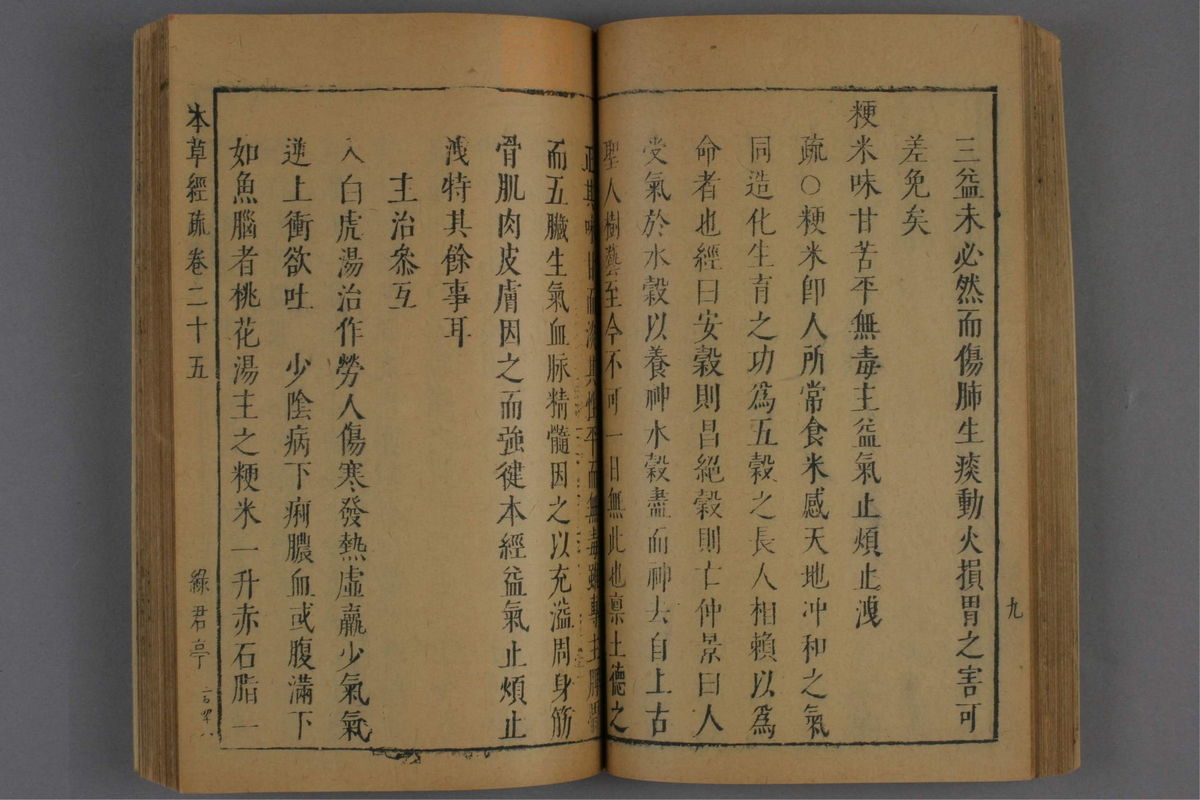 三益未必然而傷肺生痰動火損胃之害可
差免矣
粳米味甘苦平無毒主益氣止煩止洩
疏〇粳米卽人所常食米感天地冲和之氣
同造化生育之功爲五穀之長人相賴以爲
命者也經曰安穀則昌絕穀則亡仲景曰人
受氣於水穀以養神水穀盡而神去自上古
聖人樹藝至今不可一日無此也禀土德之
正其味甘而淡其性平而無毒雖專主脾胃
而五臟生氣血脈精髓因之以充溢周身筋
骨肌肉皮膚因之而強健本經益氣止煩止
洩特其餘事耳
主治叅互
入白虎湯治作勞人傷寒發熱虛羸少氣氣
逆上衝欲吐 少陰病下痢膿血或腹滿下
如魚腦者桃花湯主之粳米一升赤石脂一
九
本草經疏 卷二十五
綠君亭